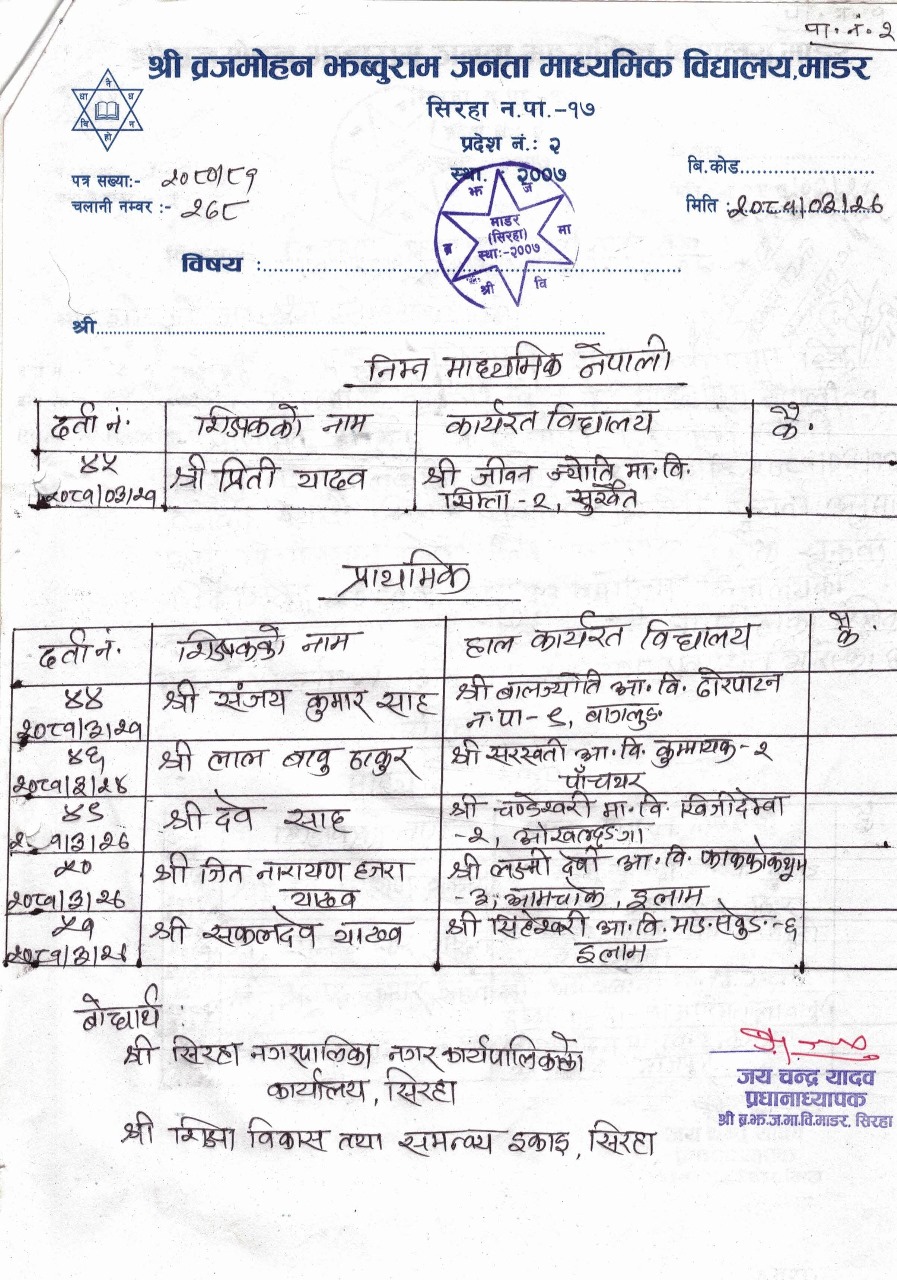 पा. नं. २
श्री व्रजमोहन झब्वुराम जनता माध्यमिक विद्यालय,माडर
सिरहा न.पा.-१७
प्रदेश नं.: २
स्था. - २००७
पत्र सख्या:- २०८०/८१
बि.कोड.
चलानी नम्बर :- २६८
मिति : २०८१/०३/२६
झ ज
ब्र मा
श्री वि
माडर
(सिरहा)
स्था:-२००७
विषय :
श्री
निम्न माध्यमिक नेपाली
दर्ता नं. शिक्षकको नाम कार्यरत विद्यालय कै.
४५ श्री प्रिती यादव श्री जीवन ज्योति मा. वि.
२०८१/०३/२१ सिम्ता - २, सुर्खेत
प्राथमिक
दर्ता नं. शिक्षकको नाम हाल कार्यरत विद्यालय कै.
४४ श्री संजय कुमार साह श्री बालज्योति आ. वि. ढोरपाटन
२०८१/३/२१ न. पा - ९, बागलुङ
४६ श्री लाल बाबु ठाकुर श्री सरस्वती आ. वि. कुम्मायक - २
२०८१/३/२४ पाँचथर
४९ श्री देव साह श्री चण्डेश्वरी मा. वि. खिजीदेम्बा
१/३/२६ -२, ओखलढुङ्गा
५० श्री जित नारायण हजरा श्री लक्ष्मी देवी आ. वि. फाकफोकथुम
२०८१/३/२६ यादव -३, आमचोक, इलाम
५१ श्री सकलदेव यादव श्री सिंहेश्वरी आ. वि. माङसेबुङ - ६
२०८१/३/२६ इलाम
बोधार्थ
श्री सिरहा नगरपालिका नगर कार्यपालिकाको
कार्यालय, सिरहा
श्री शिक्षा विकास तथा समन्वय इकाइ, सिरहा
जय चन्द्र यादव
प्रधानाध्यापक
श्री ब्र.झ.ज.मा.वि.माडर, सिरहा